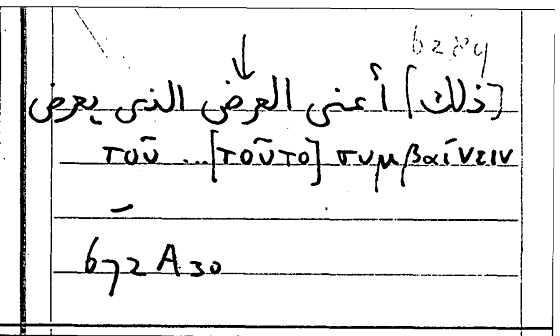 6284
[ذلك] أعنى العرض الذى يعرض
τοῦ ... [τοῦτο] συμβαίνειν
672 A 30